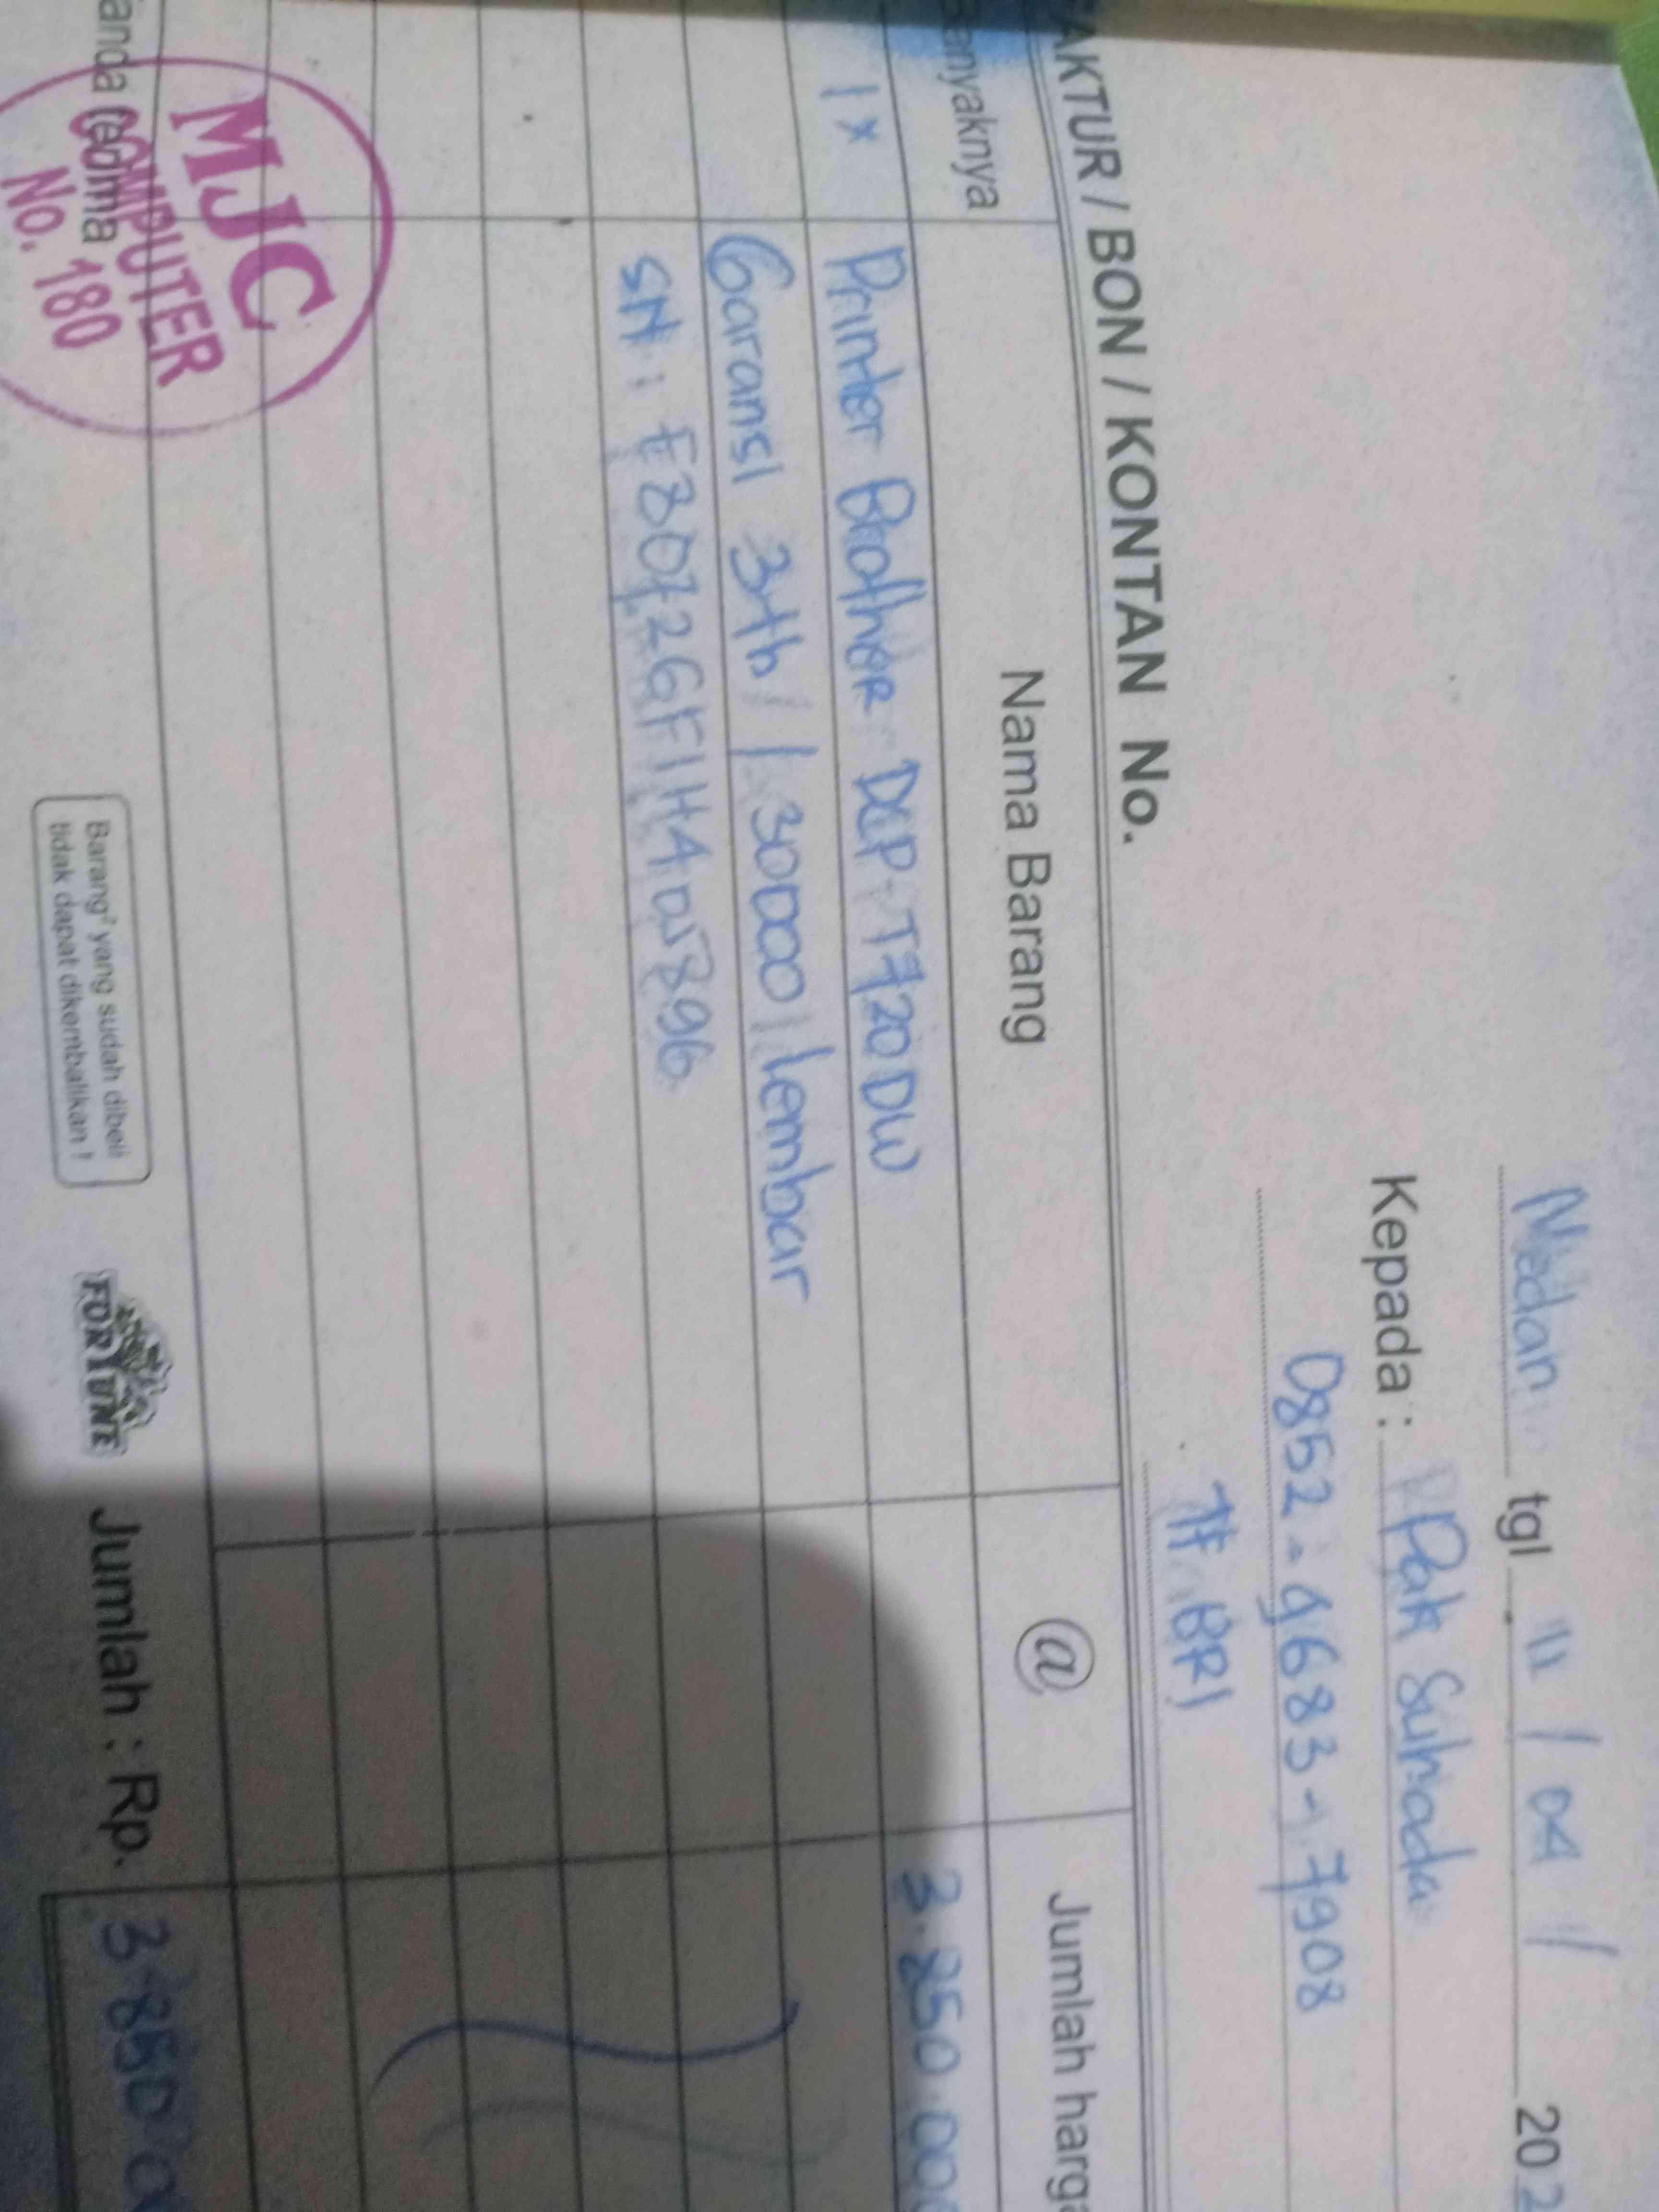 Medan tgl 11 / 04 / 202
Kepada : Pak Suhada
0852-9683-7908
TF BRI
AKTUR / BON / KONTAN No.
anyaknya Nama Barang @ Jumlah harga
1x Printer Brother DCP-T720DW 3.850.000
Garansi 3th / 30000 lembar
SN :
MJC
COMPUTER
No. 180
anda terima
Barang² yang sudah dibeli
tidak dapat dikembalikan !
FORTUNE
Jumlah : Rp. 3.850.0